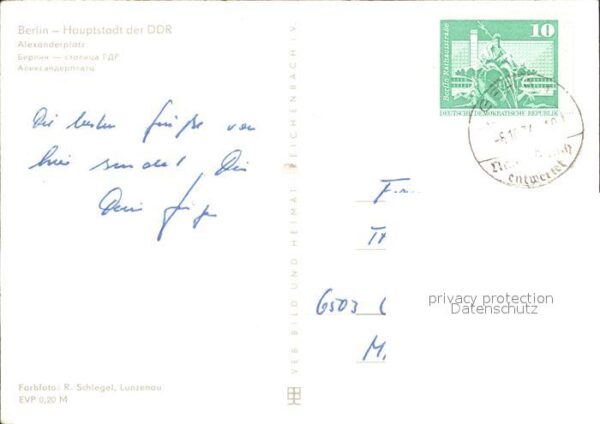 Berlin – Hauptstadt der DDR
Alexanderplatz
Берлин – столица ГДР
Александерплатц
Die besten Grüße von
hier sendet Dir
Dein
VEB BILD UND HEIMAT REICHENBACH i. V.
Berlin, Rathausstraße
10
DEUTSCHE DEMOKRATISCHE REPUBLIK
entwertet
6503
M.
privacy protection
Datenschutz
Farbfoto: R. Schlegel, Lunzenau
EVP 0,20 M